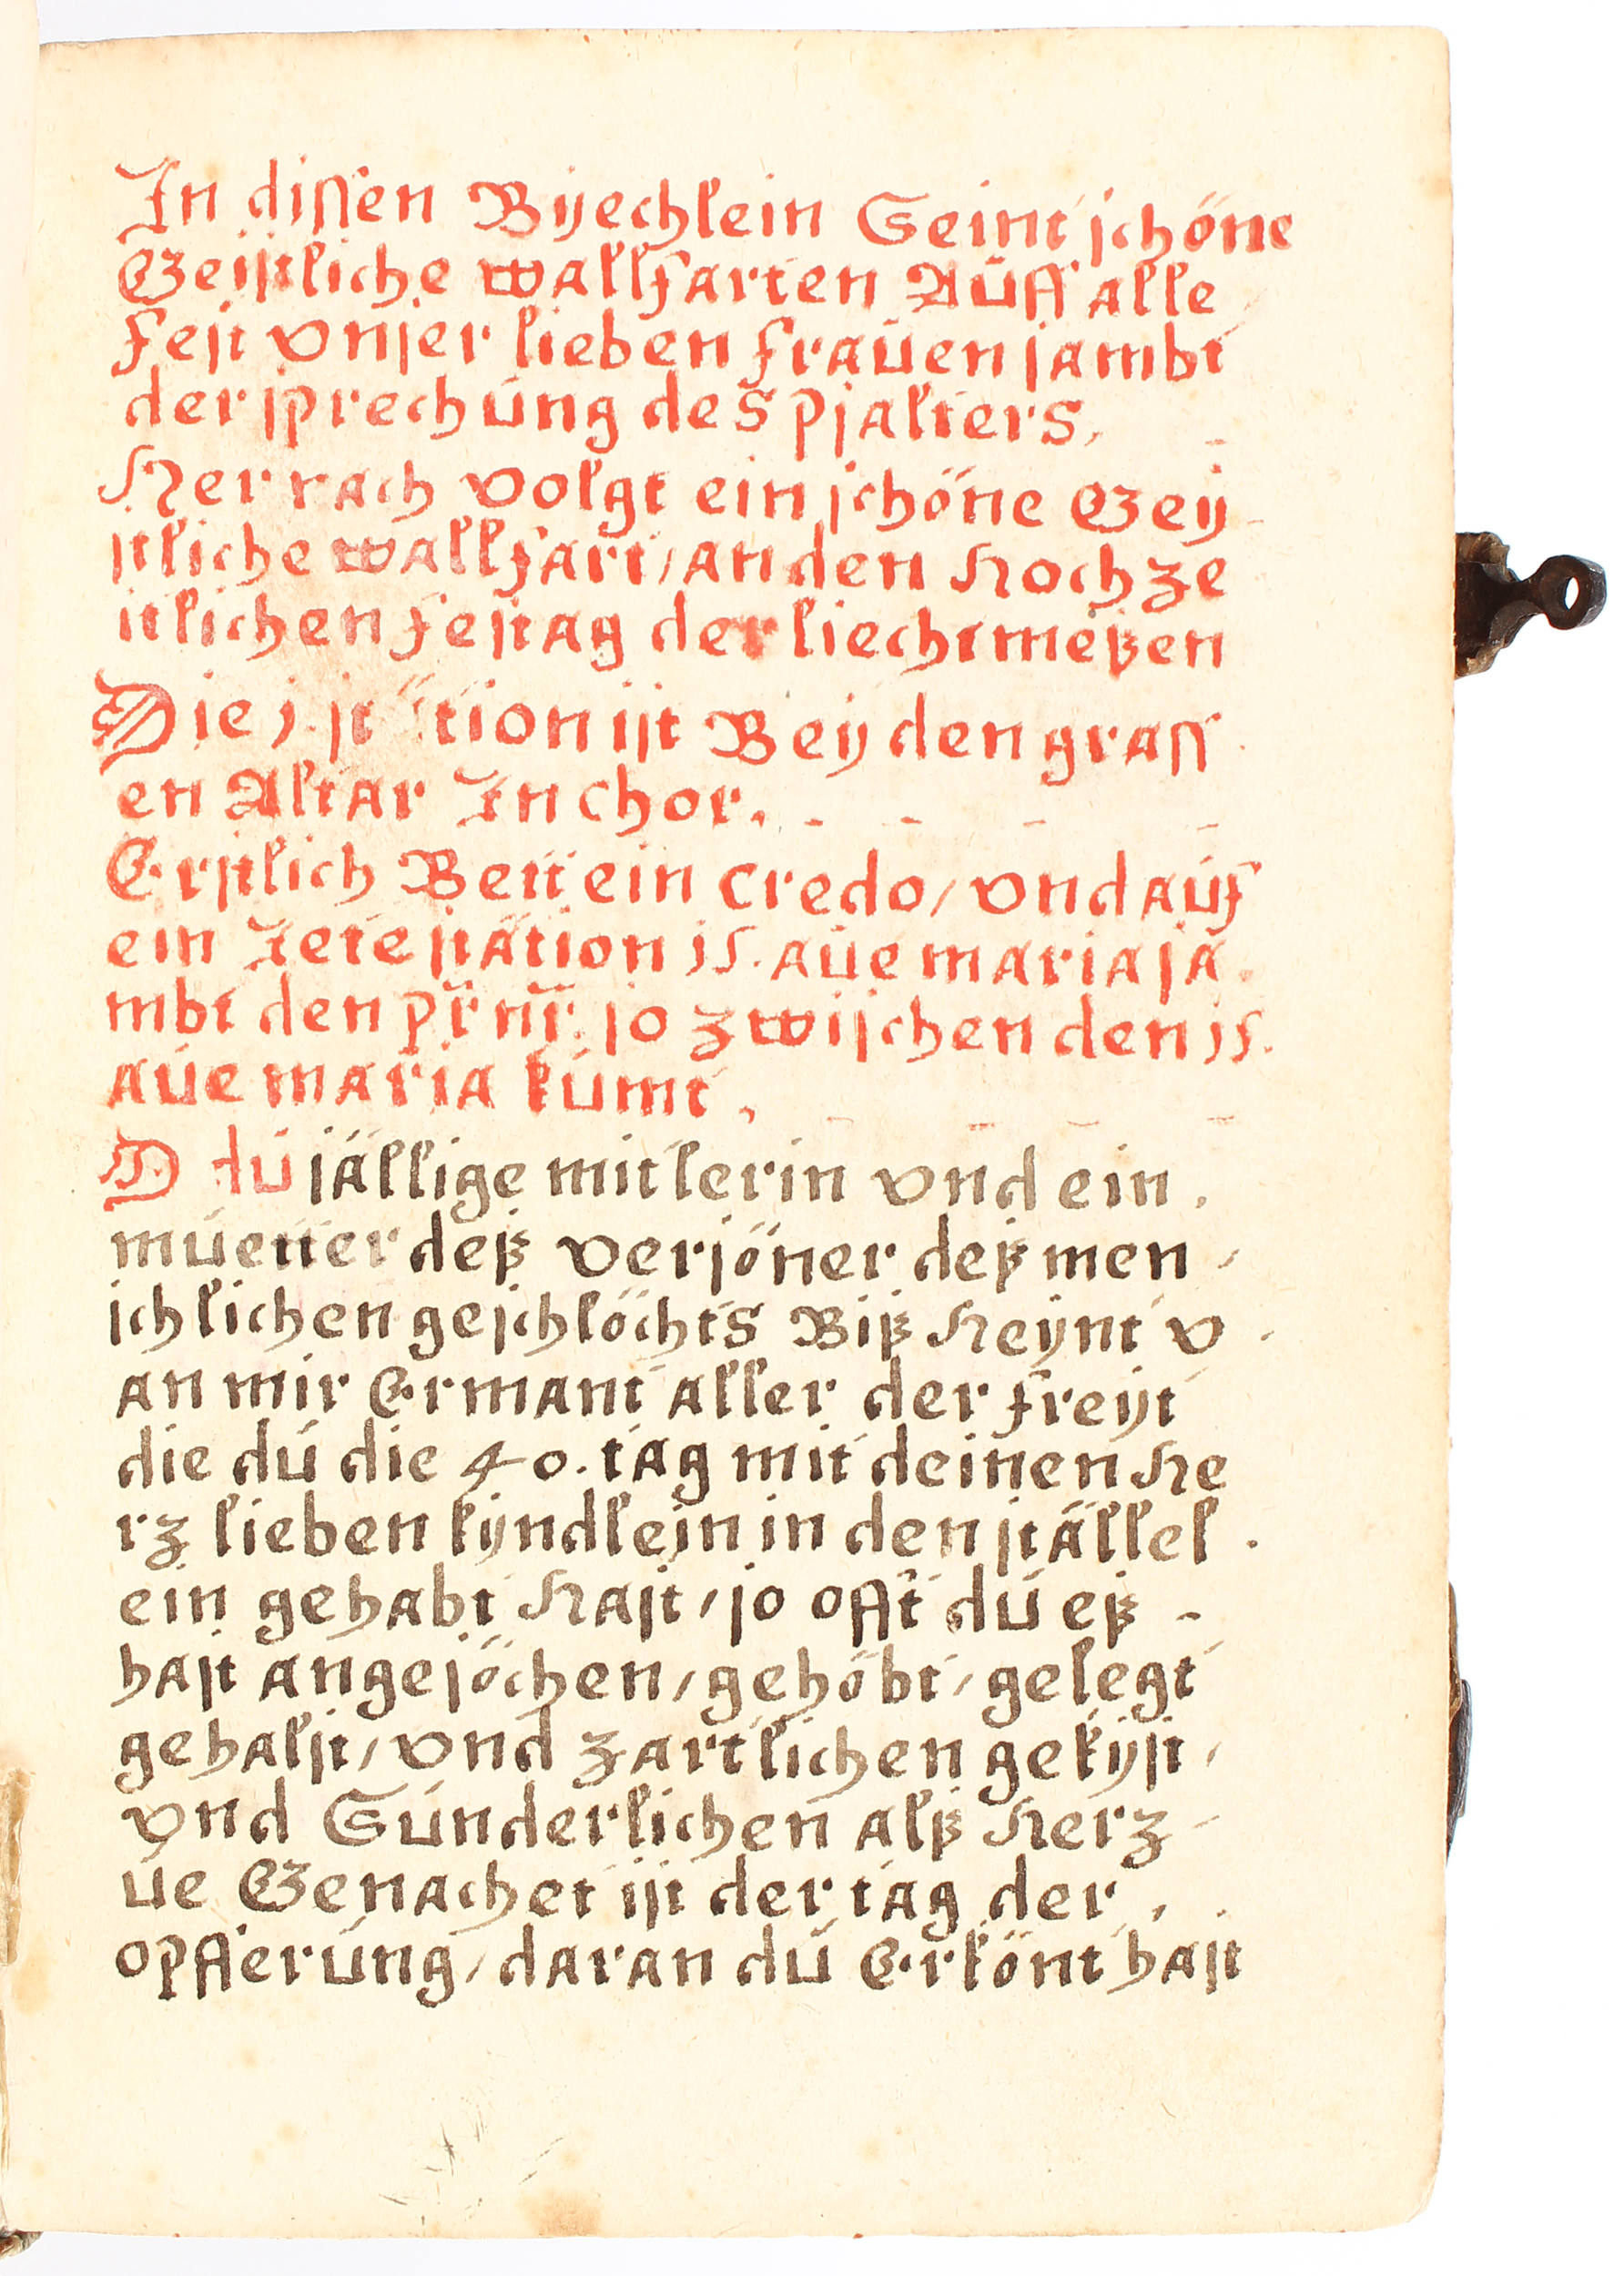 In dissen Bÿechlein Seint schöne
Geistliche wallfarten Auff alle
fest vnser lieben fraüen sambt
der sprechüng des psalters,
Her nach volgt ein schöne Geÿ
stliche wallfart, an den Hochze
itlichen festag der liechtmeßen
Die 1. stätion ist Beÿ den grass
en Altar In Chor.
Erstlich Bett ein Credo, vnd aúf
ein Jete stätion 15. aüe maria sa
mbt den pr̈ nr̈. so zwischen den 15.
aúe maria kúmt,
O dú sällige mitlerin vnd ein
múetter deß versöner deß men
schlichen geschlöchts Biß Heÿnt v
an mir Ermant aller der freÿt
die dú die 40. tag mit deinen He
rz lieben kÿndlein in den ställel
ein gehabt Hast, so offt dú eß
hast angesöchen, gehöbt, gelegt
gehalst, vnd zartlichen gekÿst,
vnd Súnderlichen alß Herz
úe Genachet ist der tag der,
opfferúng, daran dú Erkönt hast